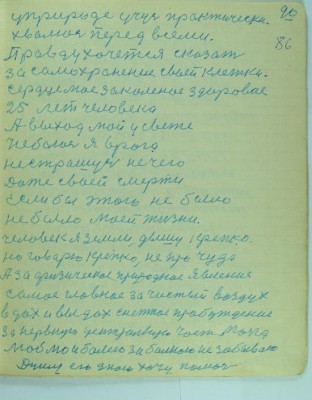 90
86
у природе учуя практически.
хвалюся перед всеми.
Правду хочется сказат
за самохранение своей клетки.
сердце мое закаленое здоровае
25 лет человека
А выход мой у свете
не боюсь я врага
не страшуся не чего
даже своей смерти
Если бы этого не было
не было моей жизни.
человек я земли, дышу крепко.
но говорю крепко, не про чудо
А за физическое природное явление
самое главное за чистый воздух
вдох и выдох снежное пробуждение
за нервную центральную часть мозга
люблю и болею за больного не забываю
Душу его знаю хочу помоч